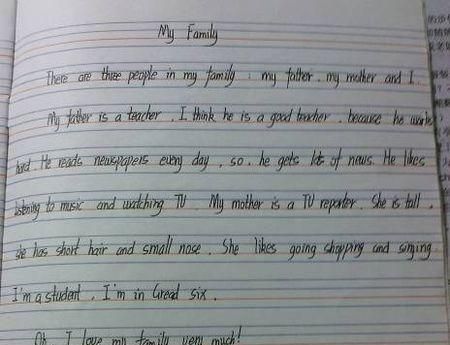 My Family
There are three people in my family : my father . my mother and I .
My father is a teacher . I think he is a good teacher . because he works
hard . He reads newspapers every day . so . he gets lots of news . He likes
listening to music and watching TV . My mother is a TV reporter . She is tall .
she has short hair and small nose . She likes going shopping and singing .
I'm a student . I'm in Gread six .
Oh . I love my family very much!